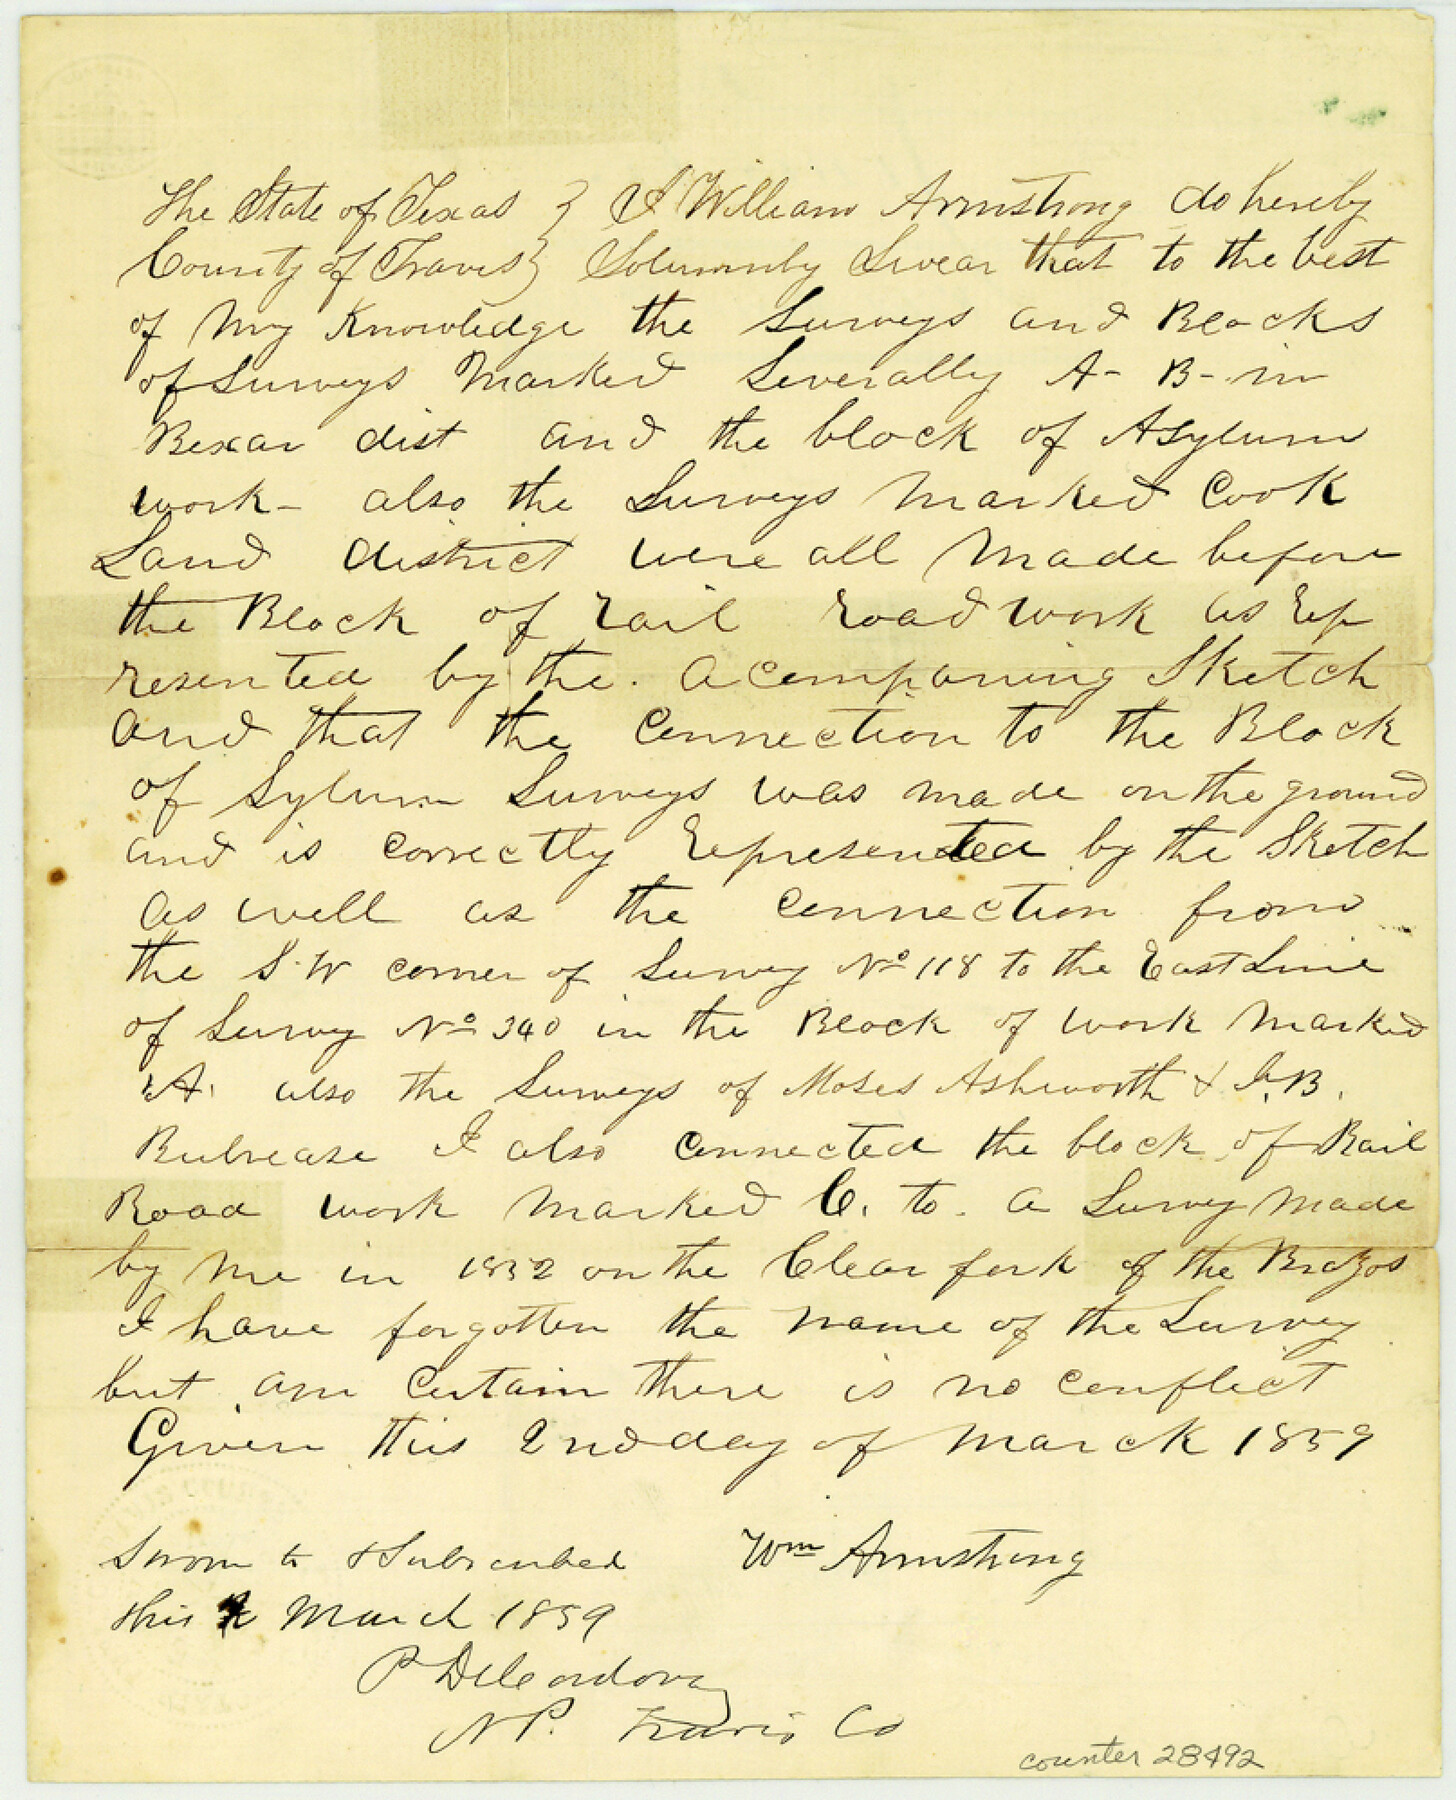 The State of Texas } I William Armstrong do hereby
County of Travis } Solemnly Swear that to the best
of my Knowledge the Surveys and Blocks
of Surveys Marked Severally A- B- in
Bexar dist and the block of Asylum
work- also the Surveys Marked Cook
Land district were all Made before
the Block of rail road work as rep
resented by the. acompaning Sketch
and that the Connection to the Block
of Sylum Surveys was made on the ground
and is Correctly represented by the Sketch
as well as the Connection from
the S.W corner of Survey No 118 to the East Line
of Survey No 340 in the Block of work Marked
"A" also the Surveys of Moses Ashworth &
I also Connected the block of Rail
Road work Marked C. to. a Survey Made
by Me in 1852 on the Clear fork of the Brazos
I have forgotten the Name of the Survey
but am Certain there is no Conflict
Given this 2nd day of March 1859
Sworn to & Subscribed Wm Armstrong
this 2 March 1859
P DeCordova
N P. Travis Co
counter 28492